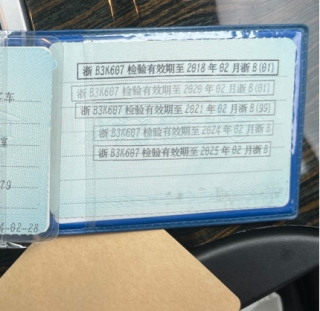 浙 B3K607 检验有效期至 2018 年 02 月浙 B(01)
浙 B3K607 检验有效期至 2020 年 02 月浙 B(01)
浙 B3K607 检验有效期至 2021 年 02 月浙 B(99)
浙 B3K607 检验有效期至 2024 年 02 月浙 B
浙 B3K607 检验有效期至 2025 年 02 月浙 B
车
79
-02-28